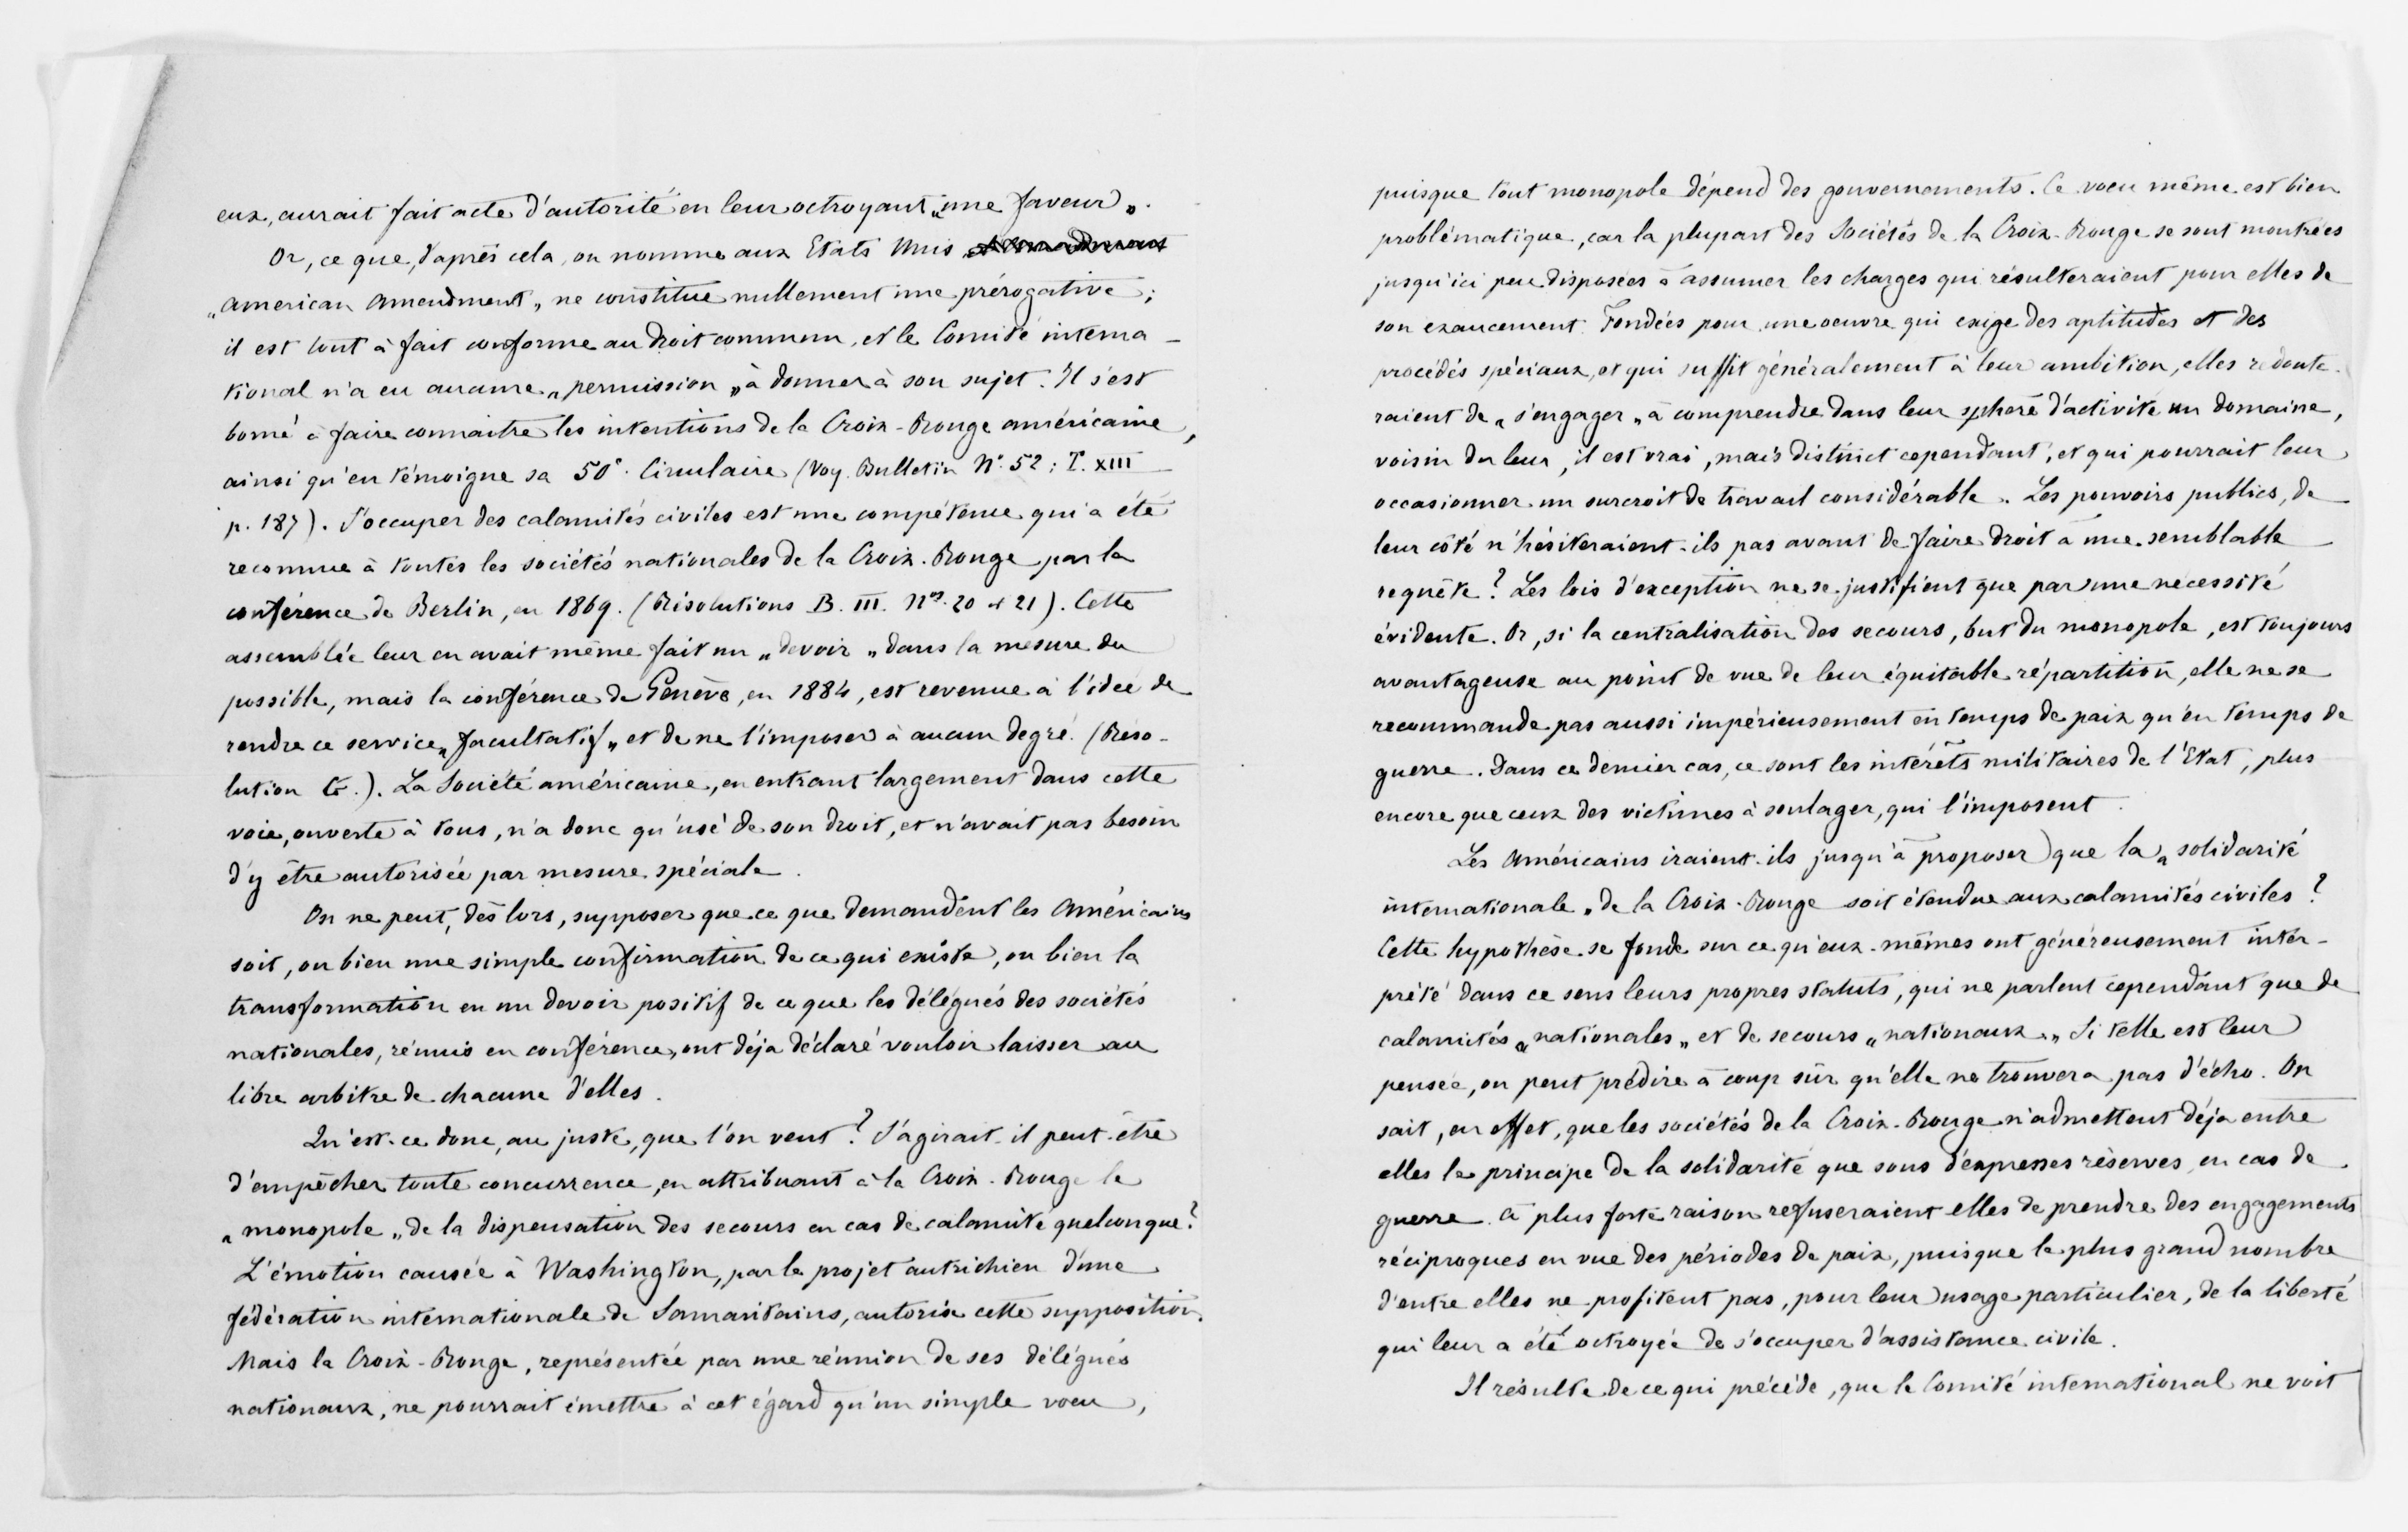 eux, aurait fait acte d'autorité en leur octroyant „une faveur„.
Or, ce que, d'après cela, on nomme aux Etats Unis
„american amendment„ ne constitue nullement une prérogative;
il est tout à fait conforme au droit commun, et le Comité interna-
tional n'a eu aucune „permission„ à donner à son sujet. Il s'est
borné à faire connaitre les intentions de la Croix-Rouge américaine,
ainsi qu'en témoigne sa 50e. Circulaire (Voy. Bulletin No. 52; T. XIII
p. 187). S'occuper des calamités civiles est une compétence qui a été
reconnue à toutes les sociétés nationales de la Croix-Rouge par la
conférence de Berlin, en 1869. (Résolutions B. III. Nos. 20 et 21). Cette
assemblée leur en avait même fait un „devoir„ dans la mesure du
possible, mais la conférence de Genève, en 1884, est revenue à l'idée de
rendre ce service „facultatif„ et de ne l'imposer à aucun degré. (Réso-
lution G.). La Société américaine, en entrant largement dans cette
voie, ouverte à tous, n'a donc qu'usé de son droit, et n'avait pas besoin
d'y être autorisée par mesure spéciale.
On ne peut, dès lors, supposer que ce que demandent les Américains
soit, ou bien une simple confirmation de ce qui existe, ou bien la
transformation en un devoir positif de ce que les délégués des sociétés
nationales, réunis en conférence, ont déja déclaré vouloir laisser au
libre arbitre de chacune d'elles.
Qu'est-ce donc, au juste, que l'on veut? S'agirait-il peut-être
d'empêcher toute concurrence, en attribuant à la Croix-Rouge le
„monopole„ de la dispensation des secours en cas de calamité quelconque?
L'émotion causée à Washington, par le projet autrichien d'une
fédération internationale de Samaritains, autorise cette supposition.
Mais la Croix-Rouge, représentée par une réunion de ses délégués
nationaux, ne pourrait émettre à cet égard qu'un simple voeu,
puisque tout monopole dépend des gouvernements. Ce voeu même est bien
problématique, car la plupart des Sociétés de la Croix-Rouge se sont montrées
jusqu'ici peu disposées à assumer les charges qui résulteraient pour elles de
son exaucement. Fondées pour une oeuvre qui exige des aptitudes et des
procédés spéciaux, et qui suffit généralement à leur ambition, elles redoute-
raient de „s'engager„ à comprendre dans leur sphère d'activité un domaine,
voisin du leur, il est vrai, mais distinct cependant, et qui pourrait leur
occasionner un surcroit de travail considérable. Les pouvoirs publics, de
leur côté n'hésiteraient-ils pas avant de faire droit à une semblable
requête? Les lois d'exception ne se justifient que par une nécessité
évidente. Or, si la centralisation des secours, but du monopole, est toujours
avantageuse au point de vue de leur équitable répartition, elle ne se
recommande pas aussi impérieusement en temps de paix qu'en temps de
guerre. Dans ce dernier cas, ce sont les intérêts militaires de l'Etat, plus
encore que ceux des victimes à soulager, qui l'imposent.
Les Américains iraient-ils jusqu'à proposer que la „solidarité
internationale„ de la Croix-Rouge soit étendue aux calamités civiles?
Cette hypothèse se fonde sur ce qu'eux-mêmes ont généreusement inter-
prété dans ce sens leurs propres statuts, qui ne parlent cependant que de
calamités „nationales„ et de secours „nationaux„ Si telle est leur
pensée, on peut prédire à coup sûr qu'elle ne trouvera pas d'écho. On
sait, en effet, que les sociétés de la Croix-Rouge n'admettent déja entre
elles le principe de la solidarité que sous d'expresses réserves, en cas de
guerre. à plus forte raison refuseraient elles de prendre des engagements
réciproques en vue des périodes de paix, puisque le plus grand nombre
d'entre elles ne profitent pas, pour leur usage particulier, de la liberté
qui leur a été octroyée de s'occuper d'assistance civile.
Il résulte de ce qui précède, que le Comité international ne voit